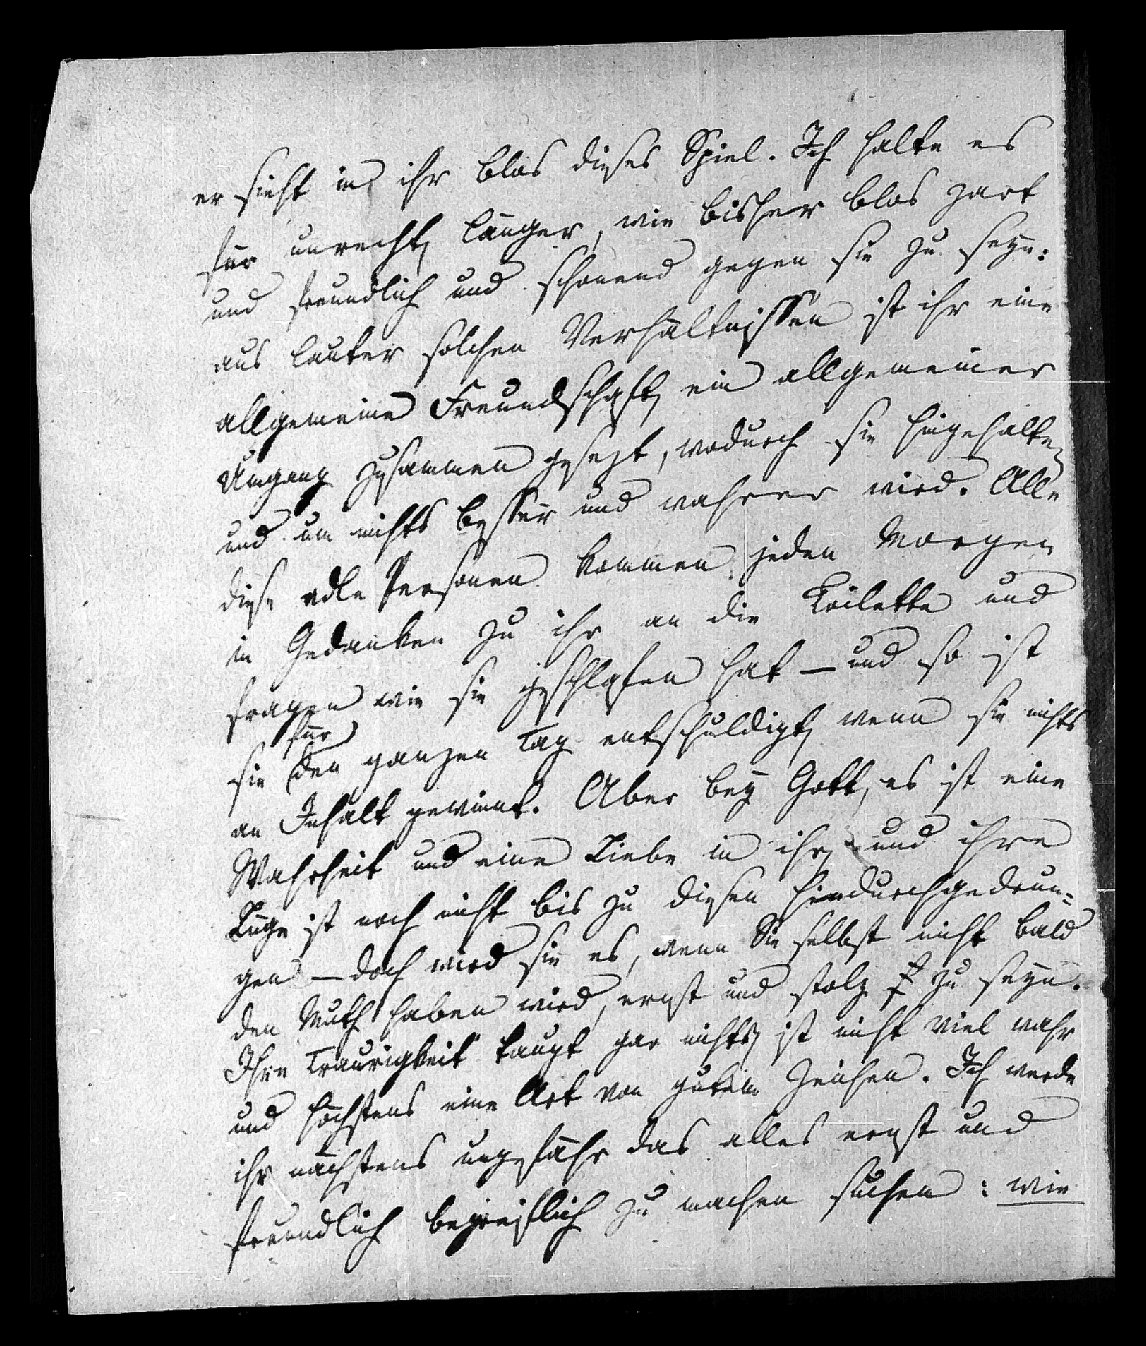 er sieht in ihr blos dieses Spiel. Ich halte es
für unrecht, länger, wie bisher blos zart
und freundlich und schonend gegen sie zu seyn:
aus lauter solchen Verhältnissen ist ihr eine
allgemeine Freundschaft, ein allgemeiner
Umgang zusammen gesezt, wodurch sie hingehalten
und um nichts besser und wahrer wird. Alle
diese edle Personen kommen jeden Morgen
in Gedanken zu ihr an die Toilette und
fragen wie sie geschlafen hat — und so ist
für
sie den ganzen Tag entschuldigt, wenn sie nichts
an Inhalt gewinnt. Aber bey Gott, es ist eine
Wahrheit und eine Liebe in ihr, und ihre
Lüge ist noch nicht bis zu diesen hindurchgedrun=
gen — doch wird sie es, wenn Sie selbst nicht bald
den Muth haben wird, ernst und stolz zu seyn.
Ihre Traurigkeit taugt gar nichts, ist nicht viel wahr
und höchstens eine Art von gutem Zeichen. Ich werde
ihr nächstens ungefähr das alles ernst und
freundlich begreiflich zu machen suchen: wie